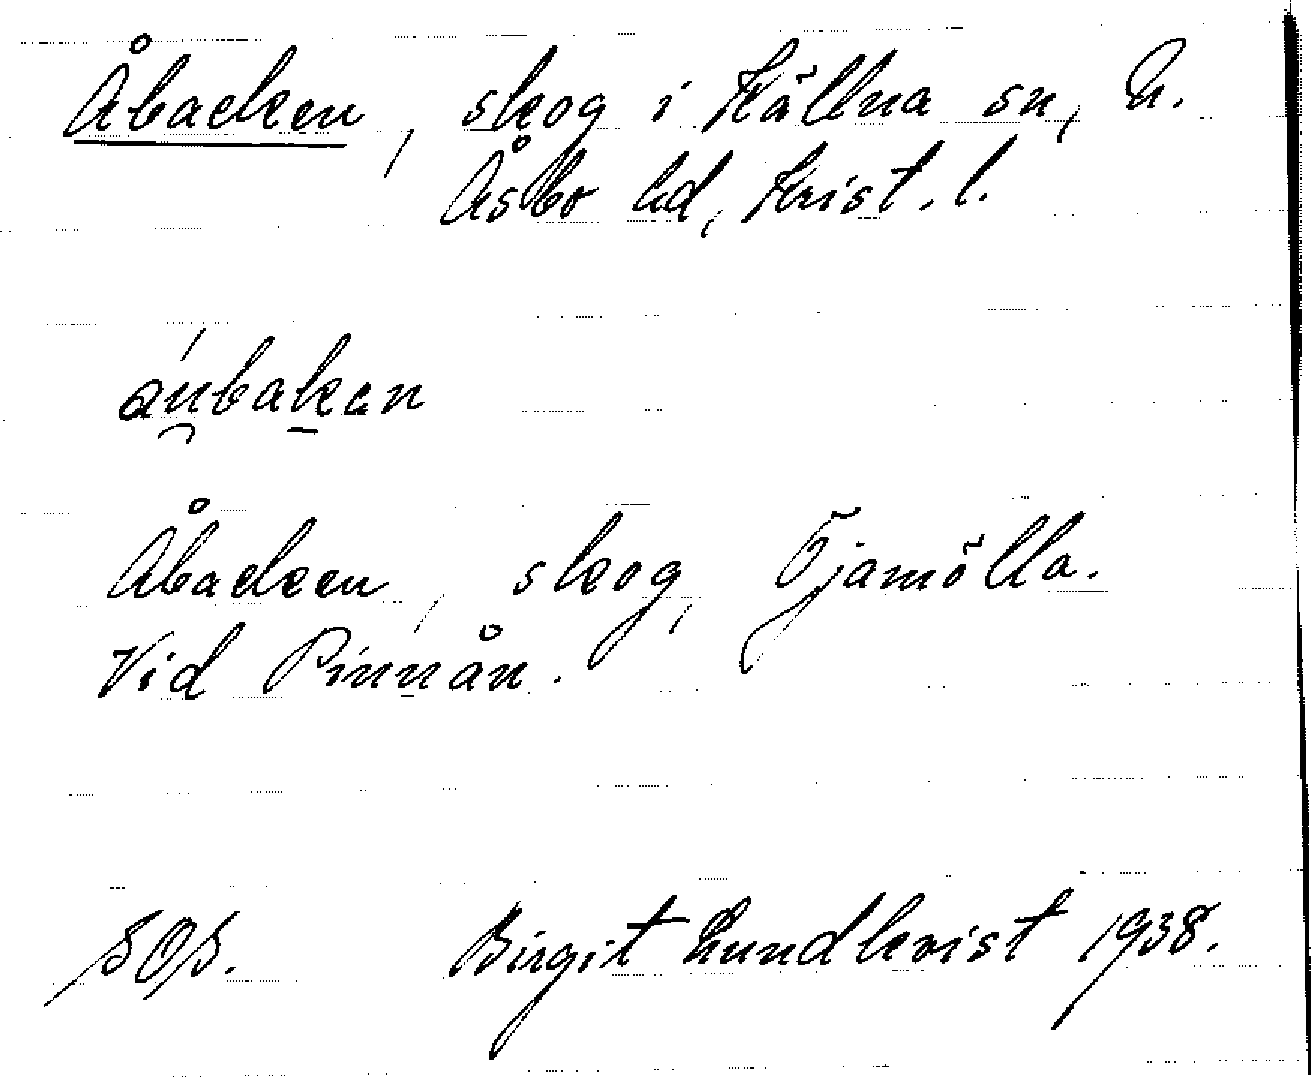 Åbacken, skog i Källna sn, N.
Åsbo hd, Krist. l.
áubakan
Åbacken, skog, Tjamölla.
Vid Pinnån.
SOS.  Birgit Lundkvist 1938.